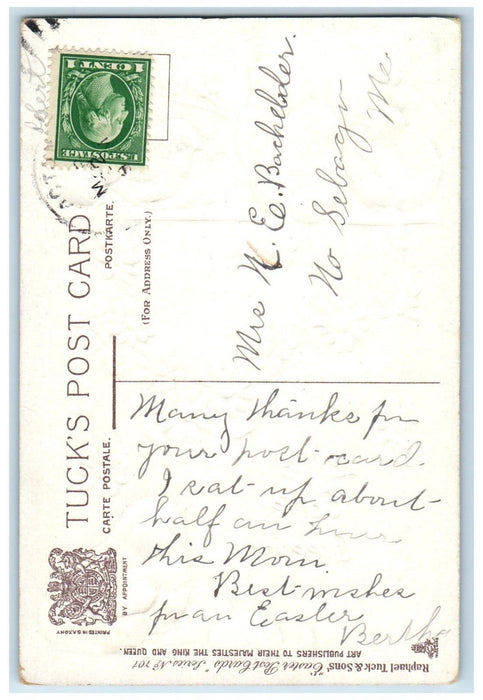 TUCK'S POST CARD
CARTE POSTALE.
POSTKARTE.
(FOR ADDRESS ONLY.)
BY APPOINTMENT
PRINTED IN SAXONY
U.S. POSTAGE
1 CENT 1
Mrs N. E. Bachelder.
No Sebago
Me
Many thanks for
your post-card.
I sat-up about-
half an hour
this Morn.
Best-wishes
for an Easter
Bertha
Raphael Tuck & Sons' "Easter Post Cards" Series No 101
ART PUBLISHERS TO THEIR MAJESTIES THE KING AND QUEEN.